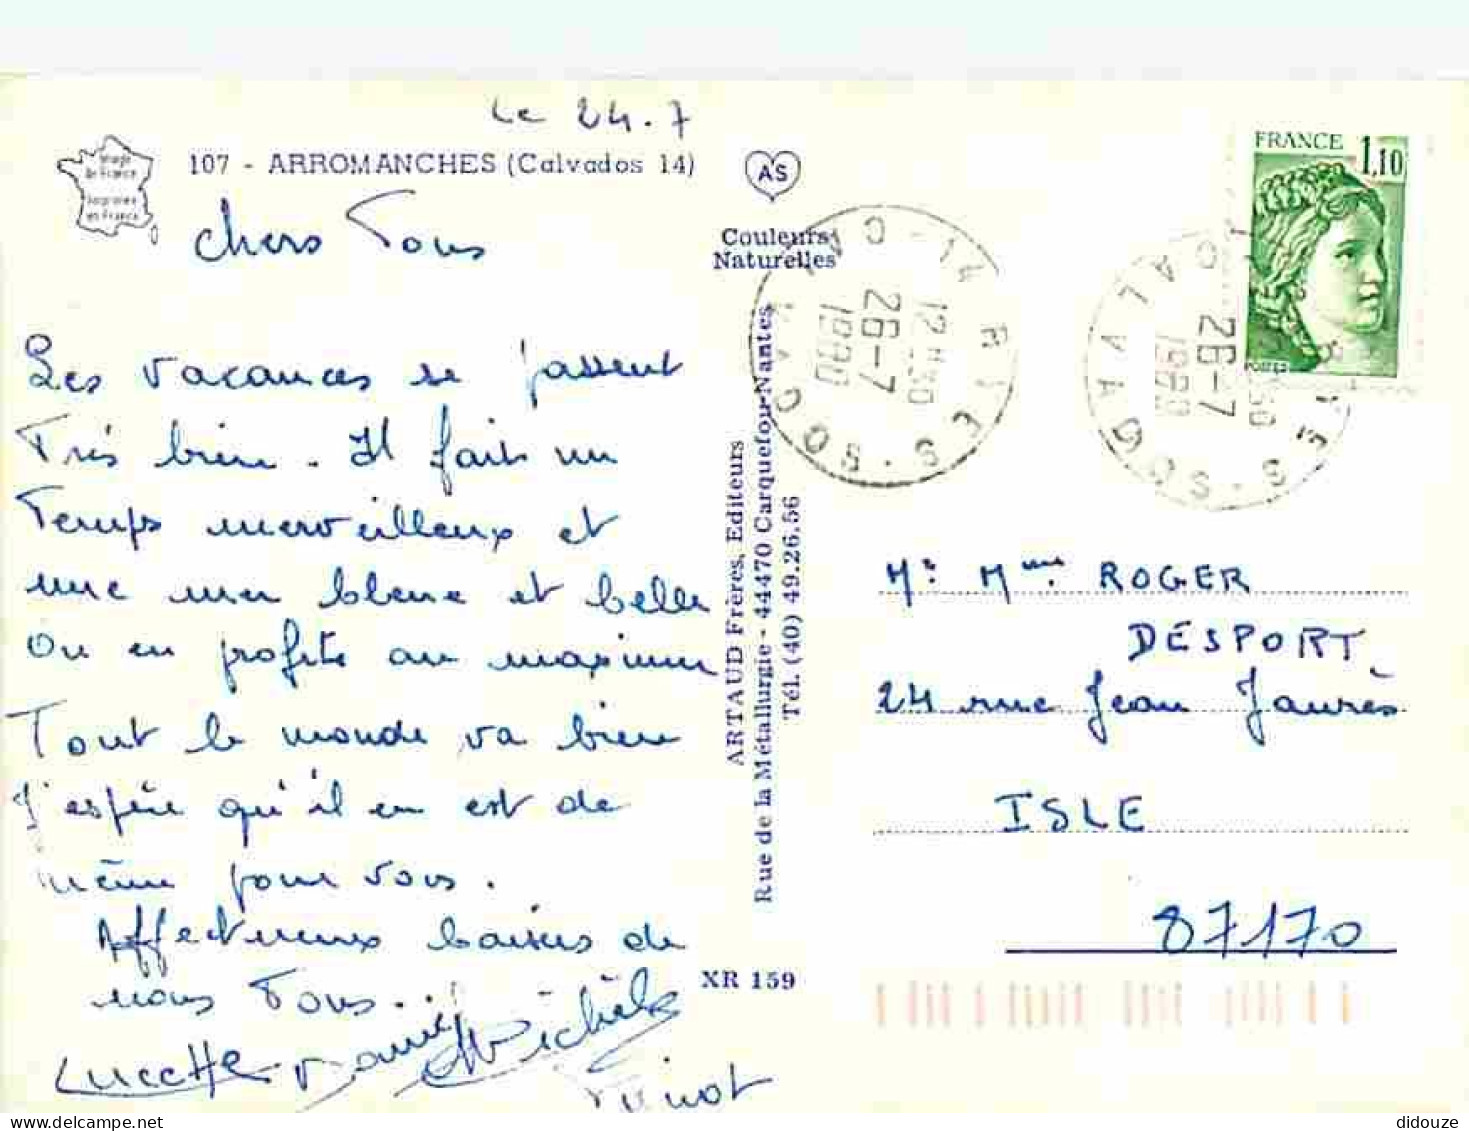 Le 24.7
107 - ARROMANCHES (Calvados 14)
Image
de France
Imprimée
en France
AS
Couleurs
Naturelles
Chers Tous
Les vacances se passent
Très bien. Il fait un
Temps merveilleux et
une mer bleue et belle
On en profite au maximum
Tout le monde va bien
J'espère qu'il en est de
même pour vous.
Affectueux baisers de
nous Tous...
Lucette Daniel Michèle
Pinot
ARTAUD Frères, Editeurs
Rue de la Métallurgie - 44470 Carquefou-Nantes
Tél. (40) 49.26.56
XR 159
FRANCE 1,10
POSTES
14 RYES CALVADOS
12H30
26-7
1980
RYES CALVADOS
26-7
1980
Mr Mme ROGER
DESPORT
24 rue Jean Jaurès
ISLE
87170
didouze